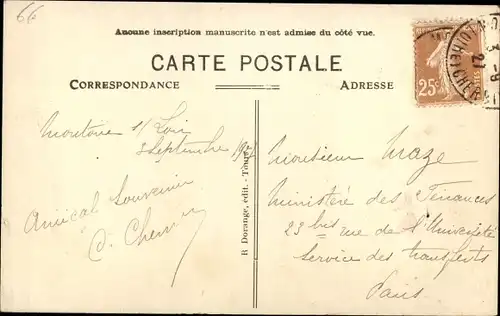 66
Aucune inscription manuscrite n'est admise du côté vue.
CARTE POSTALE
CORRESPONDANCE
ADRESSE
25c
Montoire s/ Loir
3 Septembre
Amical Souvenir
R Dorange, édit. - Tours
Monsieur Maze
Ministère des Finances
23 bis rue de l'Université
Service des transferts
Paris